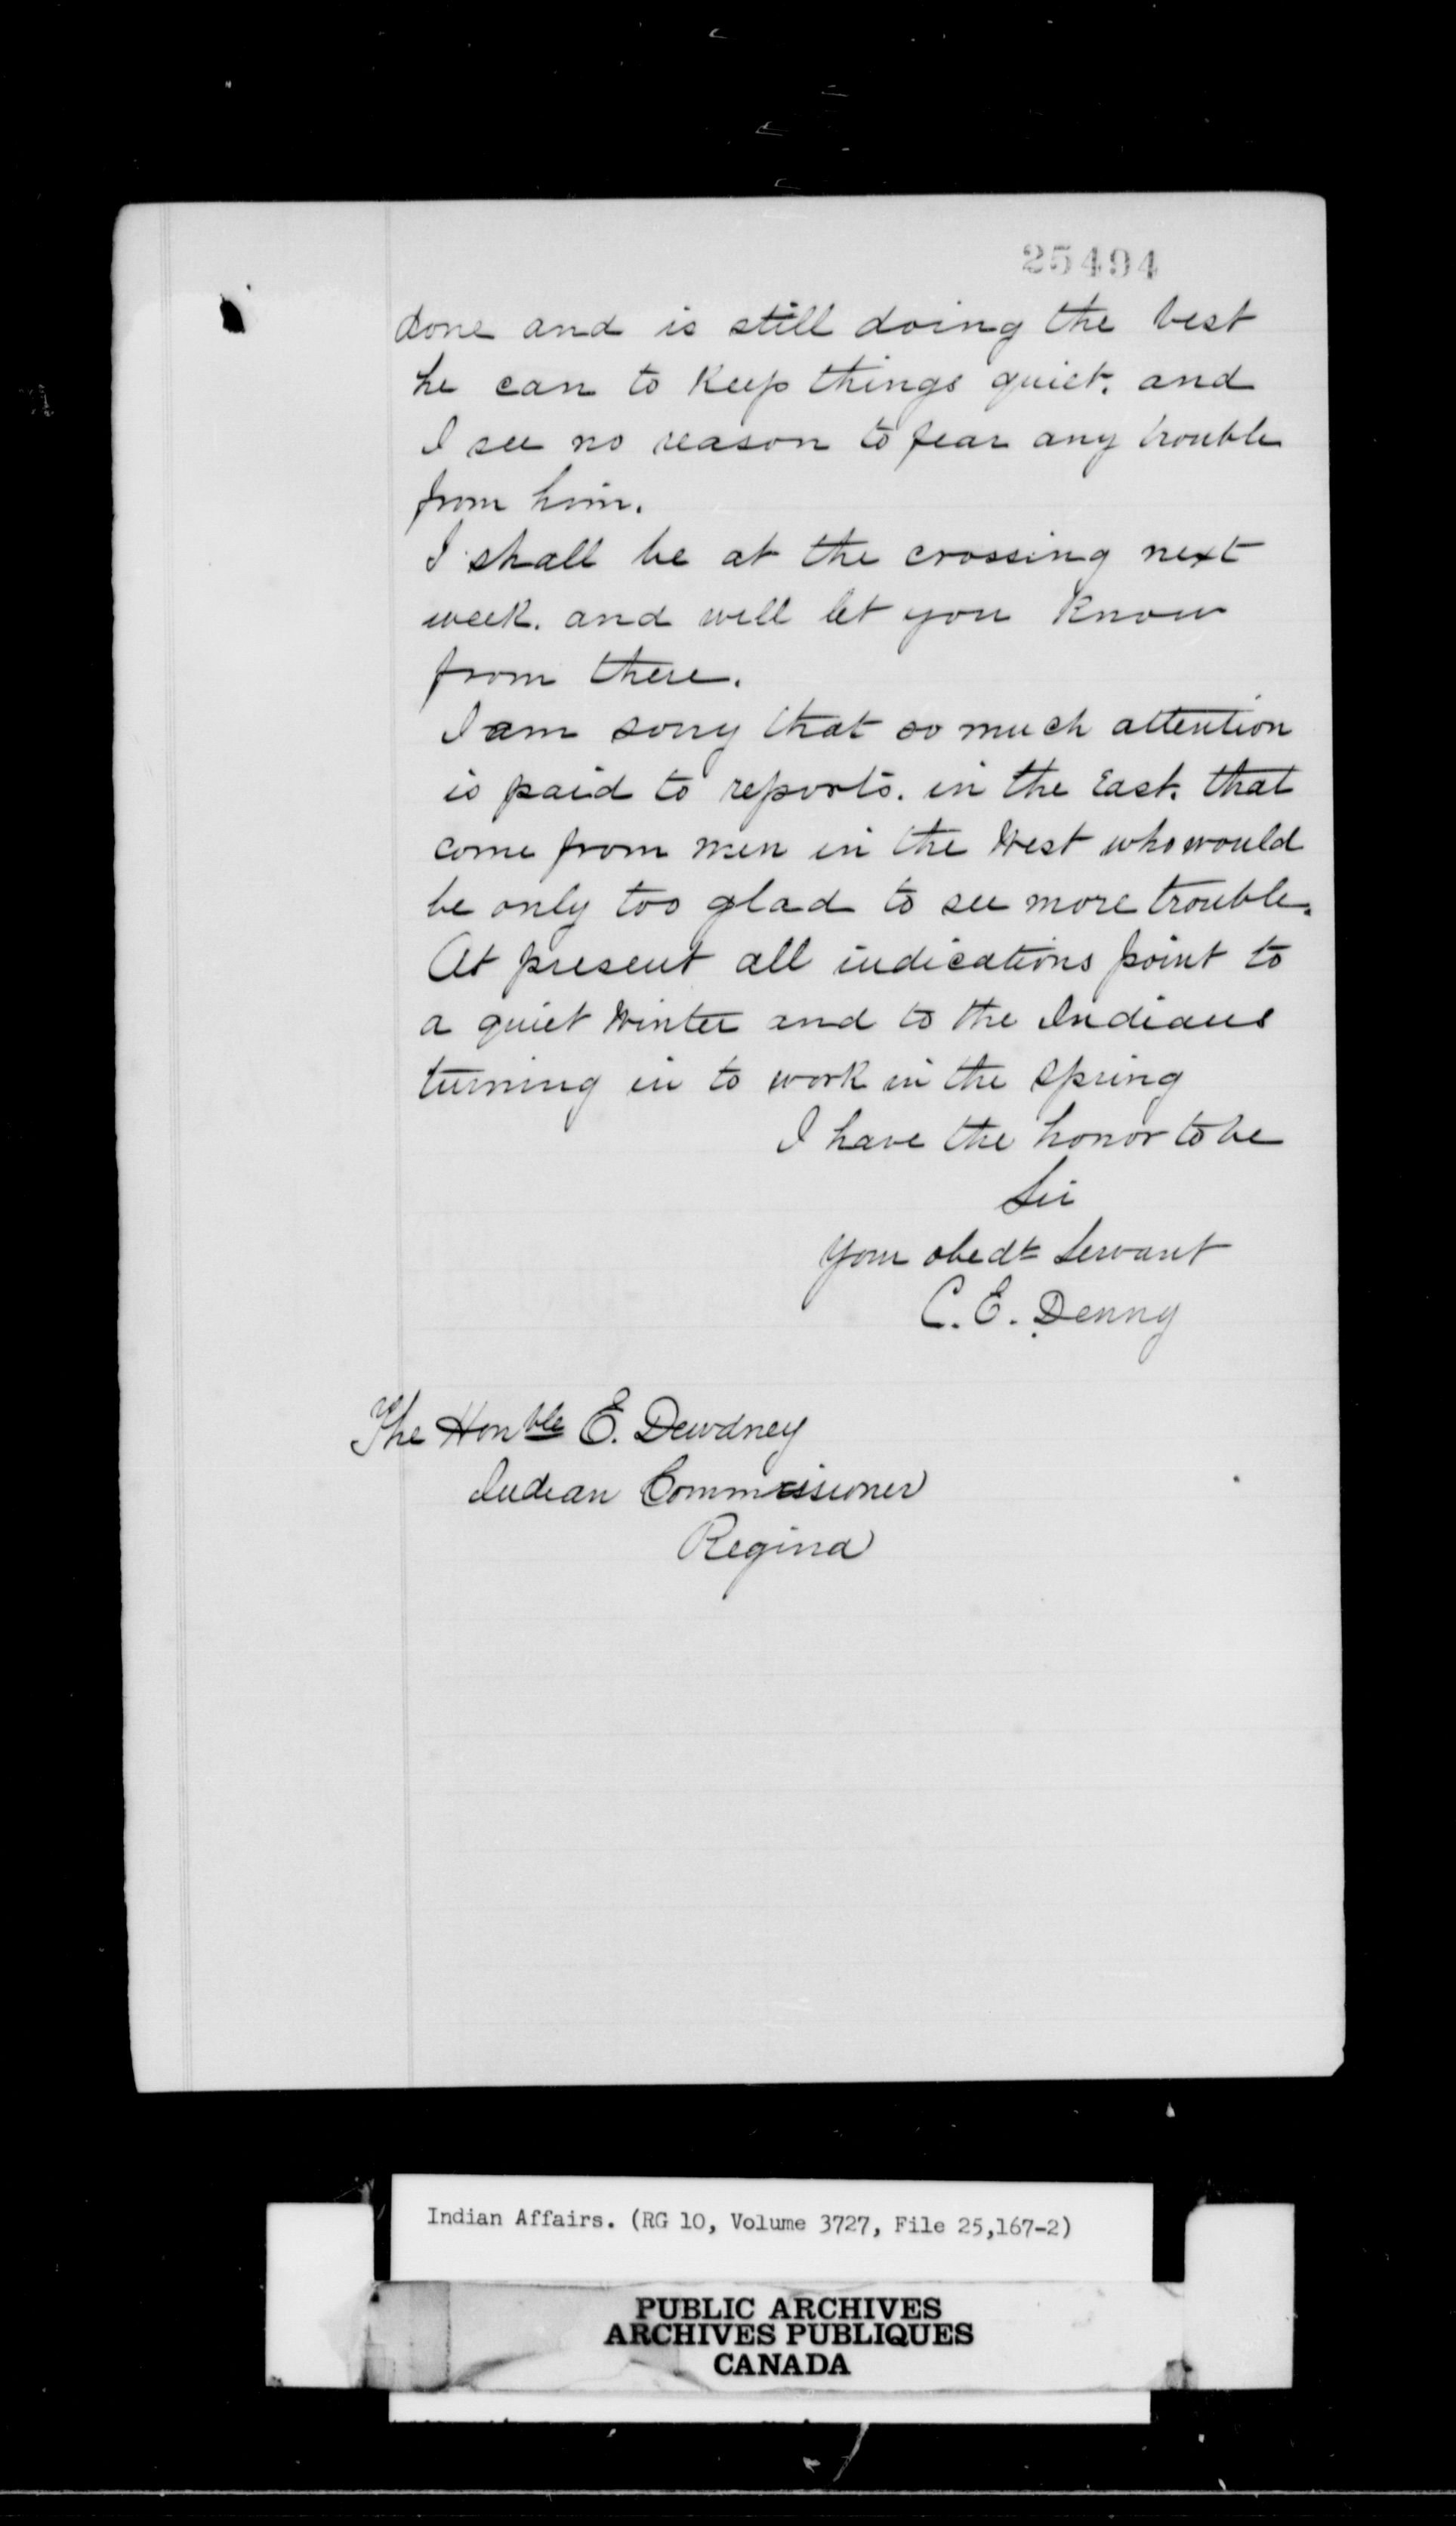 25494
done and is still doing the best
he can to keep things quiet. and
I see no reason to fear any trouble
from him.
I shall be at the crossing next
week. and will let you know
from there.
I am sorry that so much attention
is paid to reports. in the East. that
come from men in the West who would
be only too glad to see more trouble.
At present all indications point to
a quiet Winter and to the Indians
turning in to work in the spring
I have the honor to be
Sir
Your obedt Servant
C. E. Denny
The Honble E. Dewdney
Indian Commissioner
Regina
Indian Affairs. (RG 10, Volume 3727, File 25,167-2)
PUBLIC ARCHIVES
ARCHIVES PUBLIQUES
CANADA